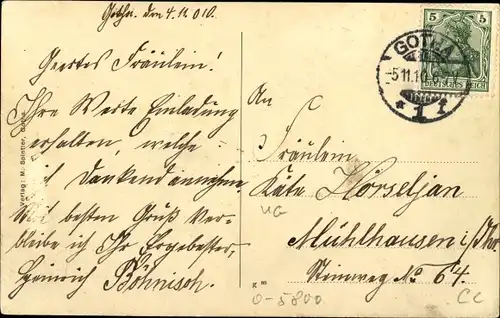 Gotha, den 4.11.010.
Geertes Fräulein!
Ihre Werte Einladung
erhalten, welche
ich Dankend annehme.
Mit besten Gruß Ver-
bleibe ich Ihr Ergebester,
Heinrich Böhnisch.
An
Fräulein
Käte Hörseljan
Mühlhausen i/Thr.
Steinweg No 64.
5
5
GOTHA
-5.11.10.
* 1
Verlag: M.
0-5800
CC